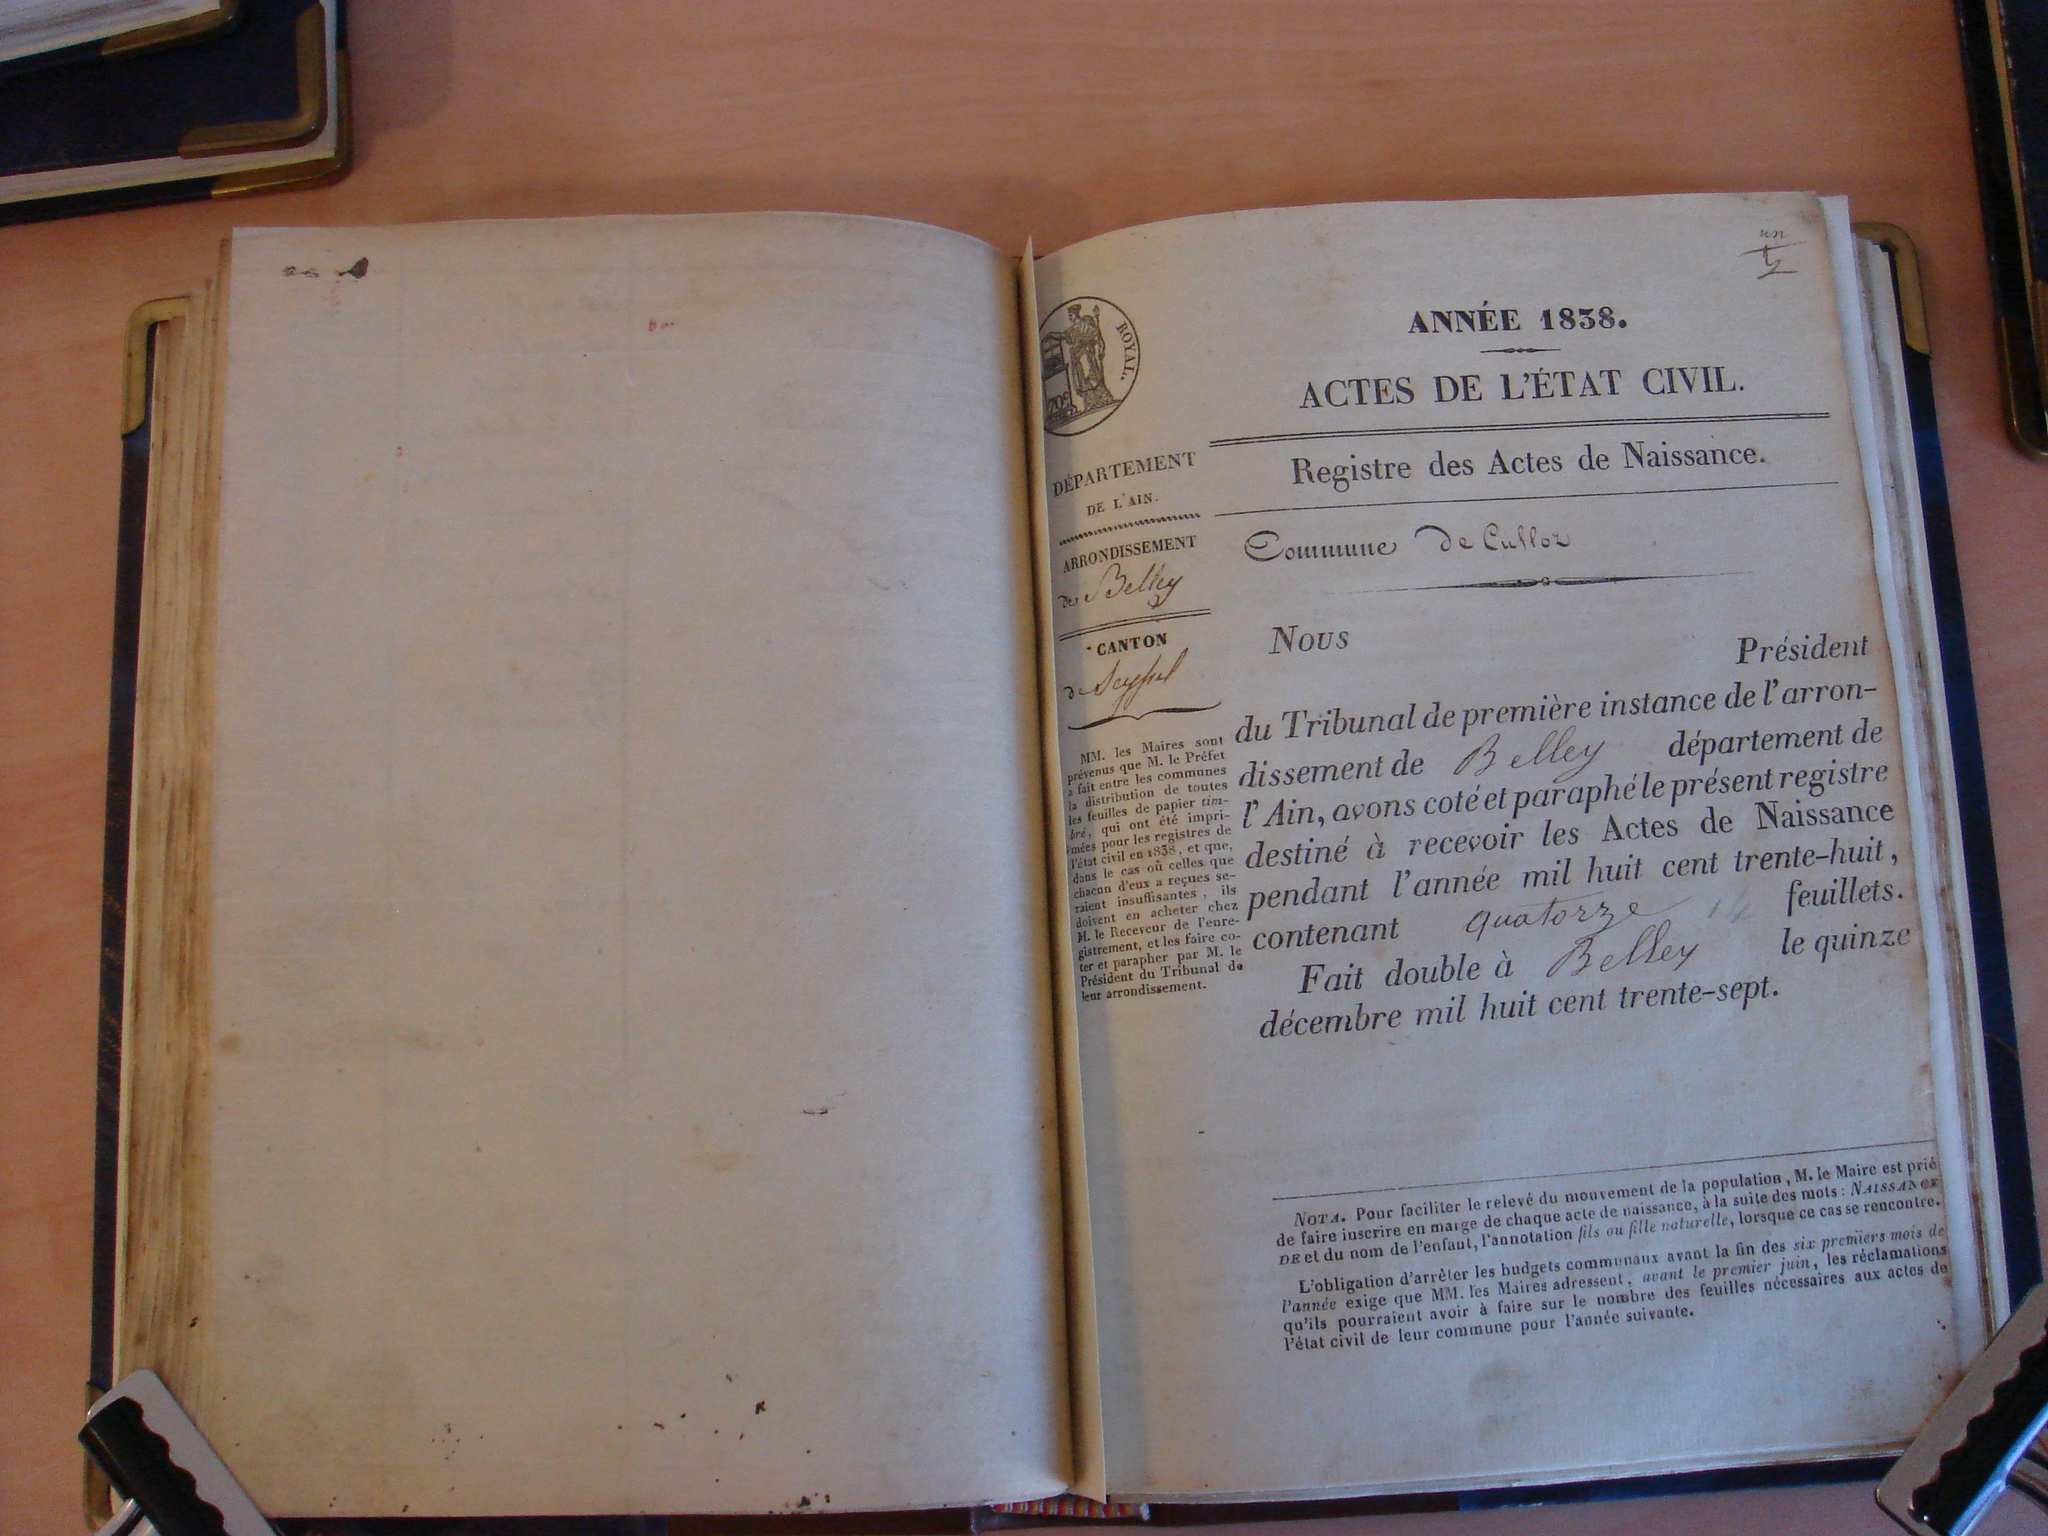 un
ROYAL.
70c
ANNÉE 1838.
ACTES DE L'ÉTAT CIVIL.
Registre des Actes de Naissance.
Commune de Culloz
DÉPARTEMENT
DE L'AIN.
ARRONDISSEMENT
de Belley
CANTON
de Seyssel
MM. les Maires sont
prévenus que M. le Préfet
a fait entre les communes
la distribution de toutes
les feuilles de papier tim-
bré, qui ont été impri-
mées pour les registres de
l'état civil en 1838, et que,
dans le cas où celles que
chacun d'eux a reçues se-
raient insuffisantes, ils
doivent en acheter chez
M. le Receveur de l'enre-
gistrement, et les faire co-
ter et parapher par M. le
Président du Tribunal de
leur arrondissement.
Nous
Président
du Tribunal de première instance de l'arron-
dissement de Belley département de
l'Ain, avons coté et paraphé le présent registre
destiné à recevoir les Actes de Naissance
pendant l'année mil huit cent trente-huit,
contenant quatorze 14 feuillets.
Fait double à Belley le quinze
décembre mil huit cent trente-sept.
NOTA. Pour faciliter le relevé du mouvement de la population, M. le Maire est prié
de faire inscrire en marge de chaque acte de naissance, à la suite des mots: NAISSANCE
DE et du nom de l'enfant, l'annotation fils ou fille naturelle, lorsque ce cas se rencontre.
L'obligation d'arrêter les budgets communaux avant la fin des six premiers mois de
l'année exige que MM. les Maires adressent, avant le premier juin, les réclamations
qu'ils pourraient avoir à faire sur le nombre des feuilles nécessaires aux actes de
l'état civil de leur commune pour l'année suivante.